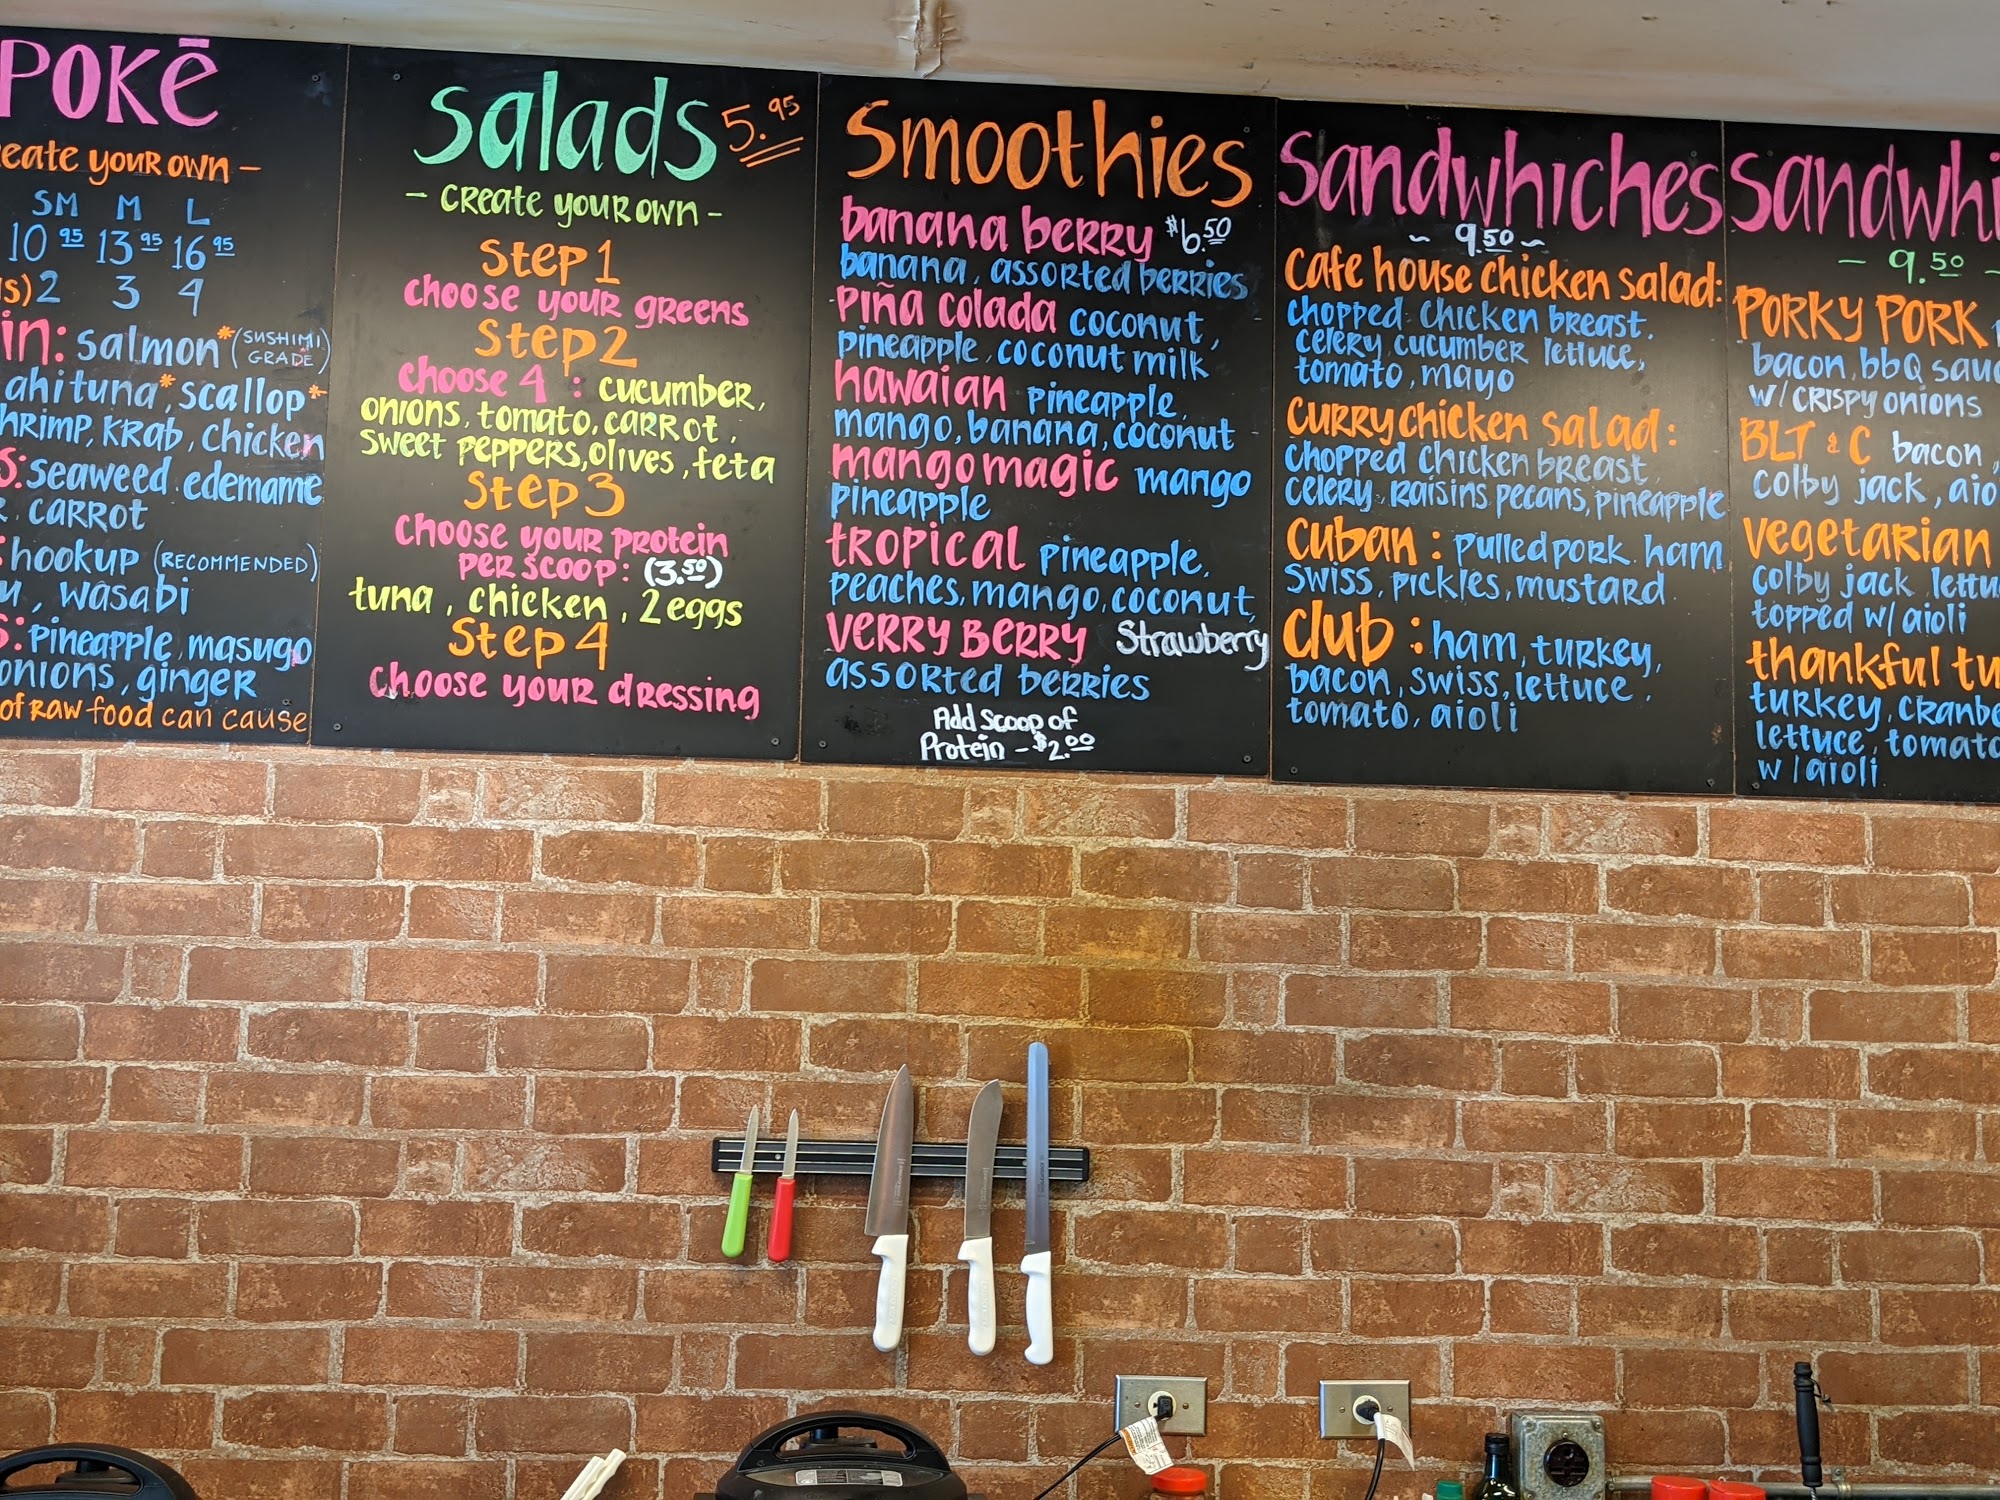 POKĒ
create your own -
SM M L
10 95 13 95 16 95
2 3 4
salmon* (SUSHIMI GRADE)
ahi tuna*, scallop*
shrimp, krab, chicken
seaweed. edemame
carrot
hookup (RECOMMENDED)
wasabi
pineapple, masugo
onions, ginger
of raw food can cause
Salads 5.95
- create your own -
Step 1
choose your greens
Step 2
choose 4 : cucumber,
onions, tomato, carrot,
sweet peppers, olives, feta
Step 3
Choose your protein
per scoop: (3.50)
tuna, chicken, 2 eggs
Step 4
Choose your dressing
Smoothies
banana berry $6.50
banana, assorted berries
piña colada coconut,
pineapple, coconut milk
hawaian pineapple,
mango, banana, coconut
mango magic mango
pineapple
tropical pineapple,
peaches, mango, coconut,
Verry Berry Strawberry
assorted berries
Add scoop of
Protein - $2.00
Sandwhiches
~ 9.50 ~
Cafe house chicken salad:
chopped chicken breast,
celery, cucumber lettuce,
tomato, mayo
Curry chicken salad:
chopped chicken breast,
celery, raisins pecans, pineapple
Cuban : pulled pork. ham
swiss, pickles, mustard
Club : ham, turkey,
bacon, swiss, lettuce,
tomato, aioli
- 9.50 -
Porky Pork
bacon, bbq
w/ crispy onions
BLT & C bacon,
colby jack,
vegetarian
colby jack,
topped w/ aioli
thankful
turkey,
lettuce,
w/ aioli.